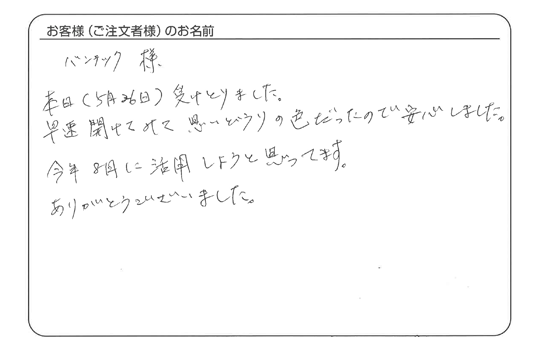 お客様（ご注文者様）のお名前
バンテック 様
本日（5月26日）受けとりました。
早速開けてみて思いどうりの色だったので安心しました。
今年8月に活用しようと思ってます。
ありがとうございました。